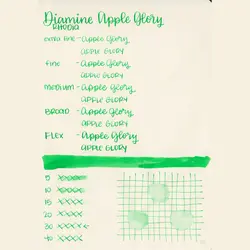 Diamine Apple Glory
RHODIA
extra fine - Apple Glory
APPLE GLORY
fine - Apple Glory
APPLE GLORY
MEDIUM - Apple Glory
APPLE GLORY
BROAD - Apple Glory
APPLE GLORY
FLEX - Apple Glory
APPLE GLORY
5 XXXX
10 XXXX
15 XXXX
20 XXXX
30 XXXX
40 XXXX